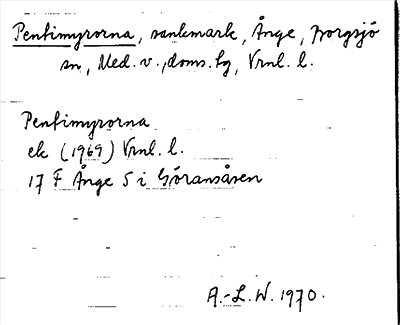 Pentimyrorna, sankmark, Ånge, Borgsjö
sn, Med. v., doms. bg, Vrnl. l.
Pentimyrorna
ek (1969) Vrnl. l.
17 F Ånge 5 i Göransåsen
A.-L. W. 1970.